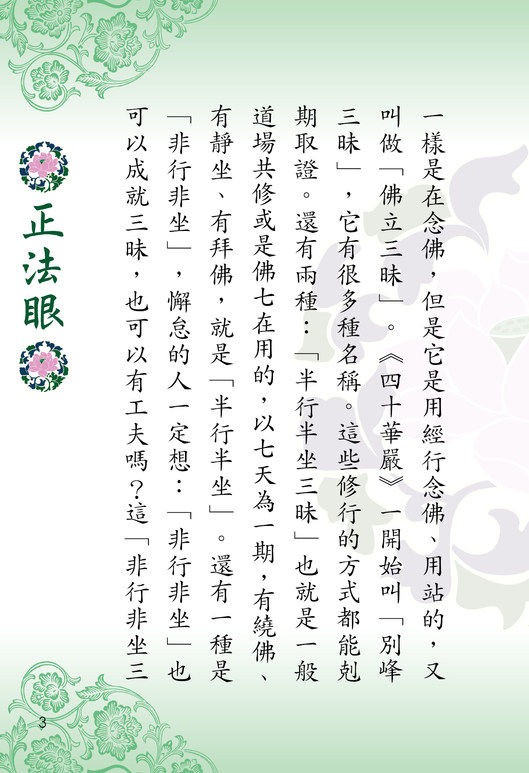 一樣是在念佛，但是它是用經行念佛、用站的，又
叫做「佛立三昧」。《四十華嚴》一開始叫「別峰
三昧」，它有很多種名稱。這些修行的方式都能剋
期取證。還有兩種：「半行半坐三昧」也就是一般
道場共修或是佛七在用的，以七天為一期，有繞佛、
有靜坐、有拜佛，就是「半行半坐」。還有一種是
「非行非坐」，懈怠的人一定想：「非行非坐」也
可以成就三昧，也可以有工夫嗎？這「非行非坐三
正法眼
3